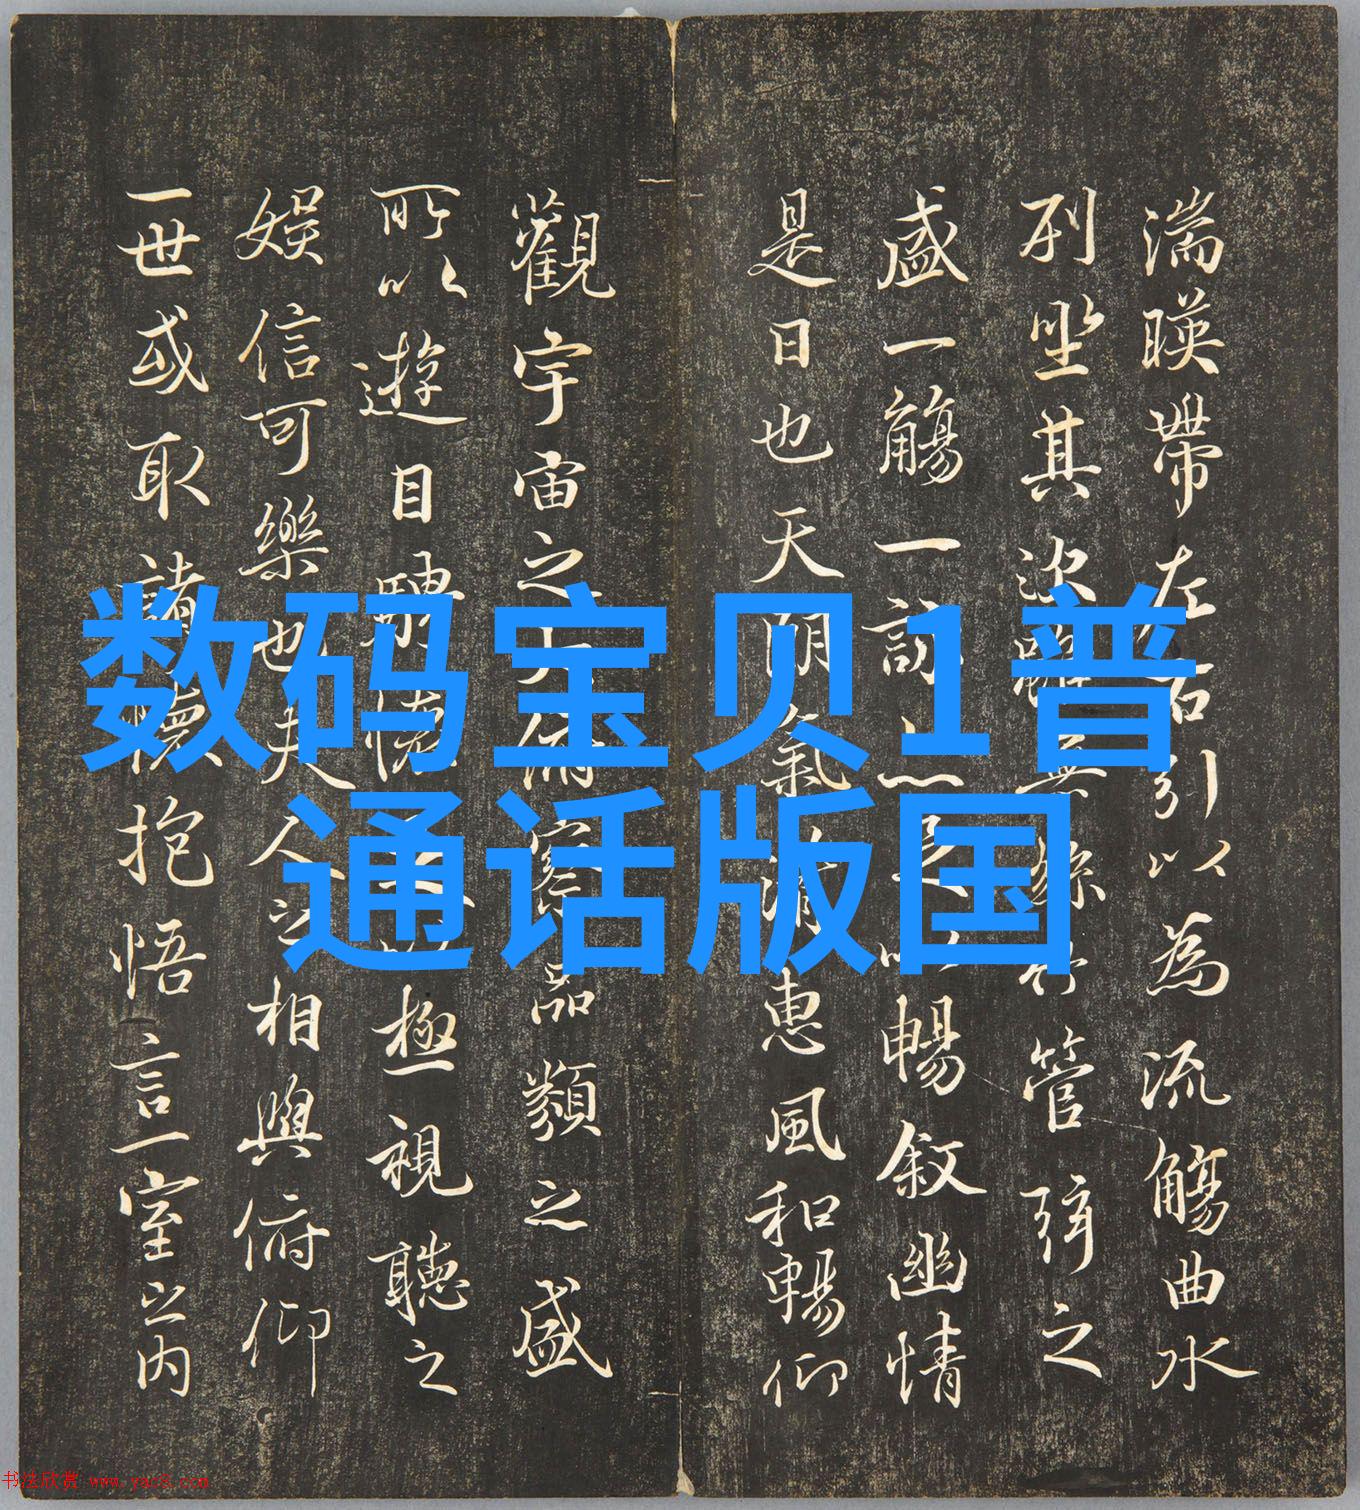 数码宝贝1普
通话版国
湍暎帶左右引以為流觴曲水
列坐其次雖無絲竹管弦之
盛一觴一詠亦足以暢敘幽情
是日也天朗氣清惠風和暢仰
觀宇宙之大俯察品類之盛
所以遊目騁懷足以極視聽之
娛信可樂也夫人之相與俯仰
一世或取諸懷抱悟言一室之內
书法欣赏 www.yac8.com